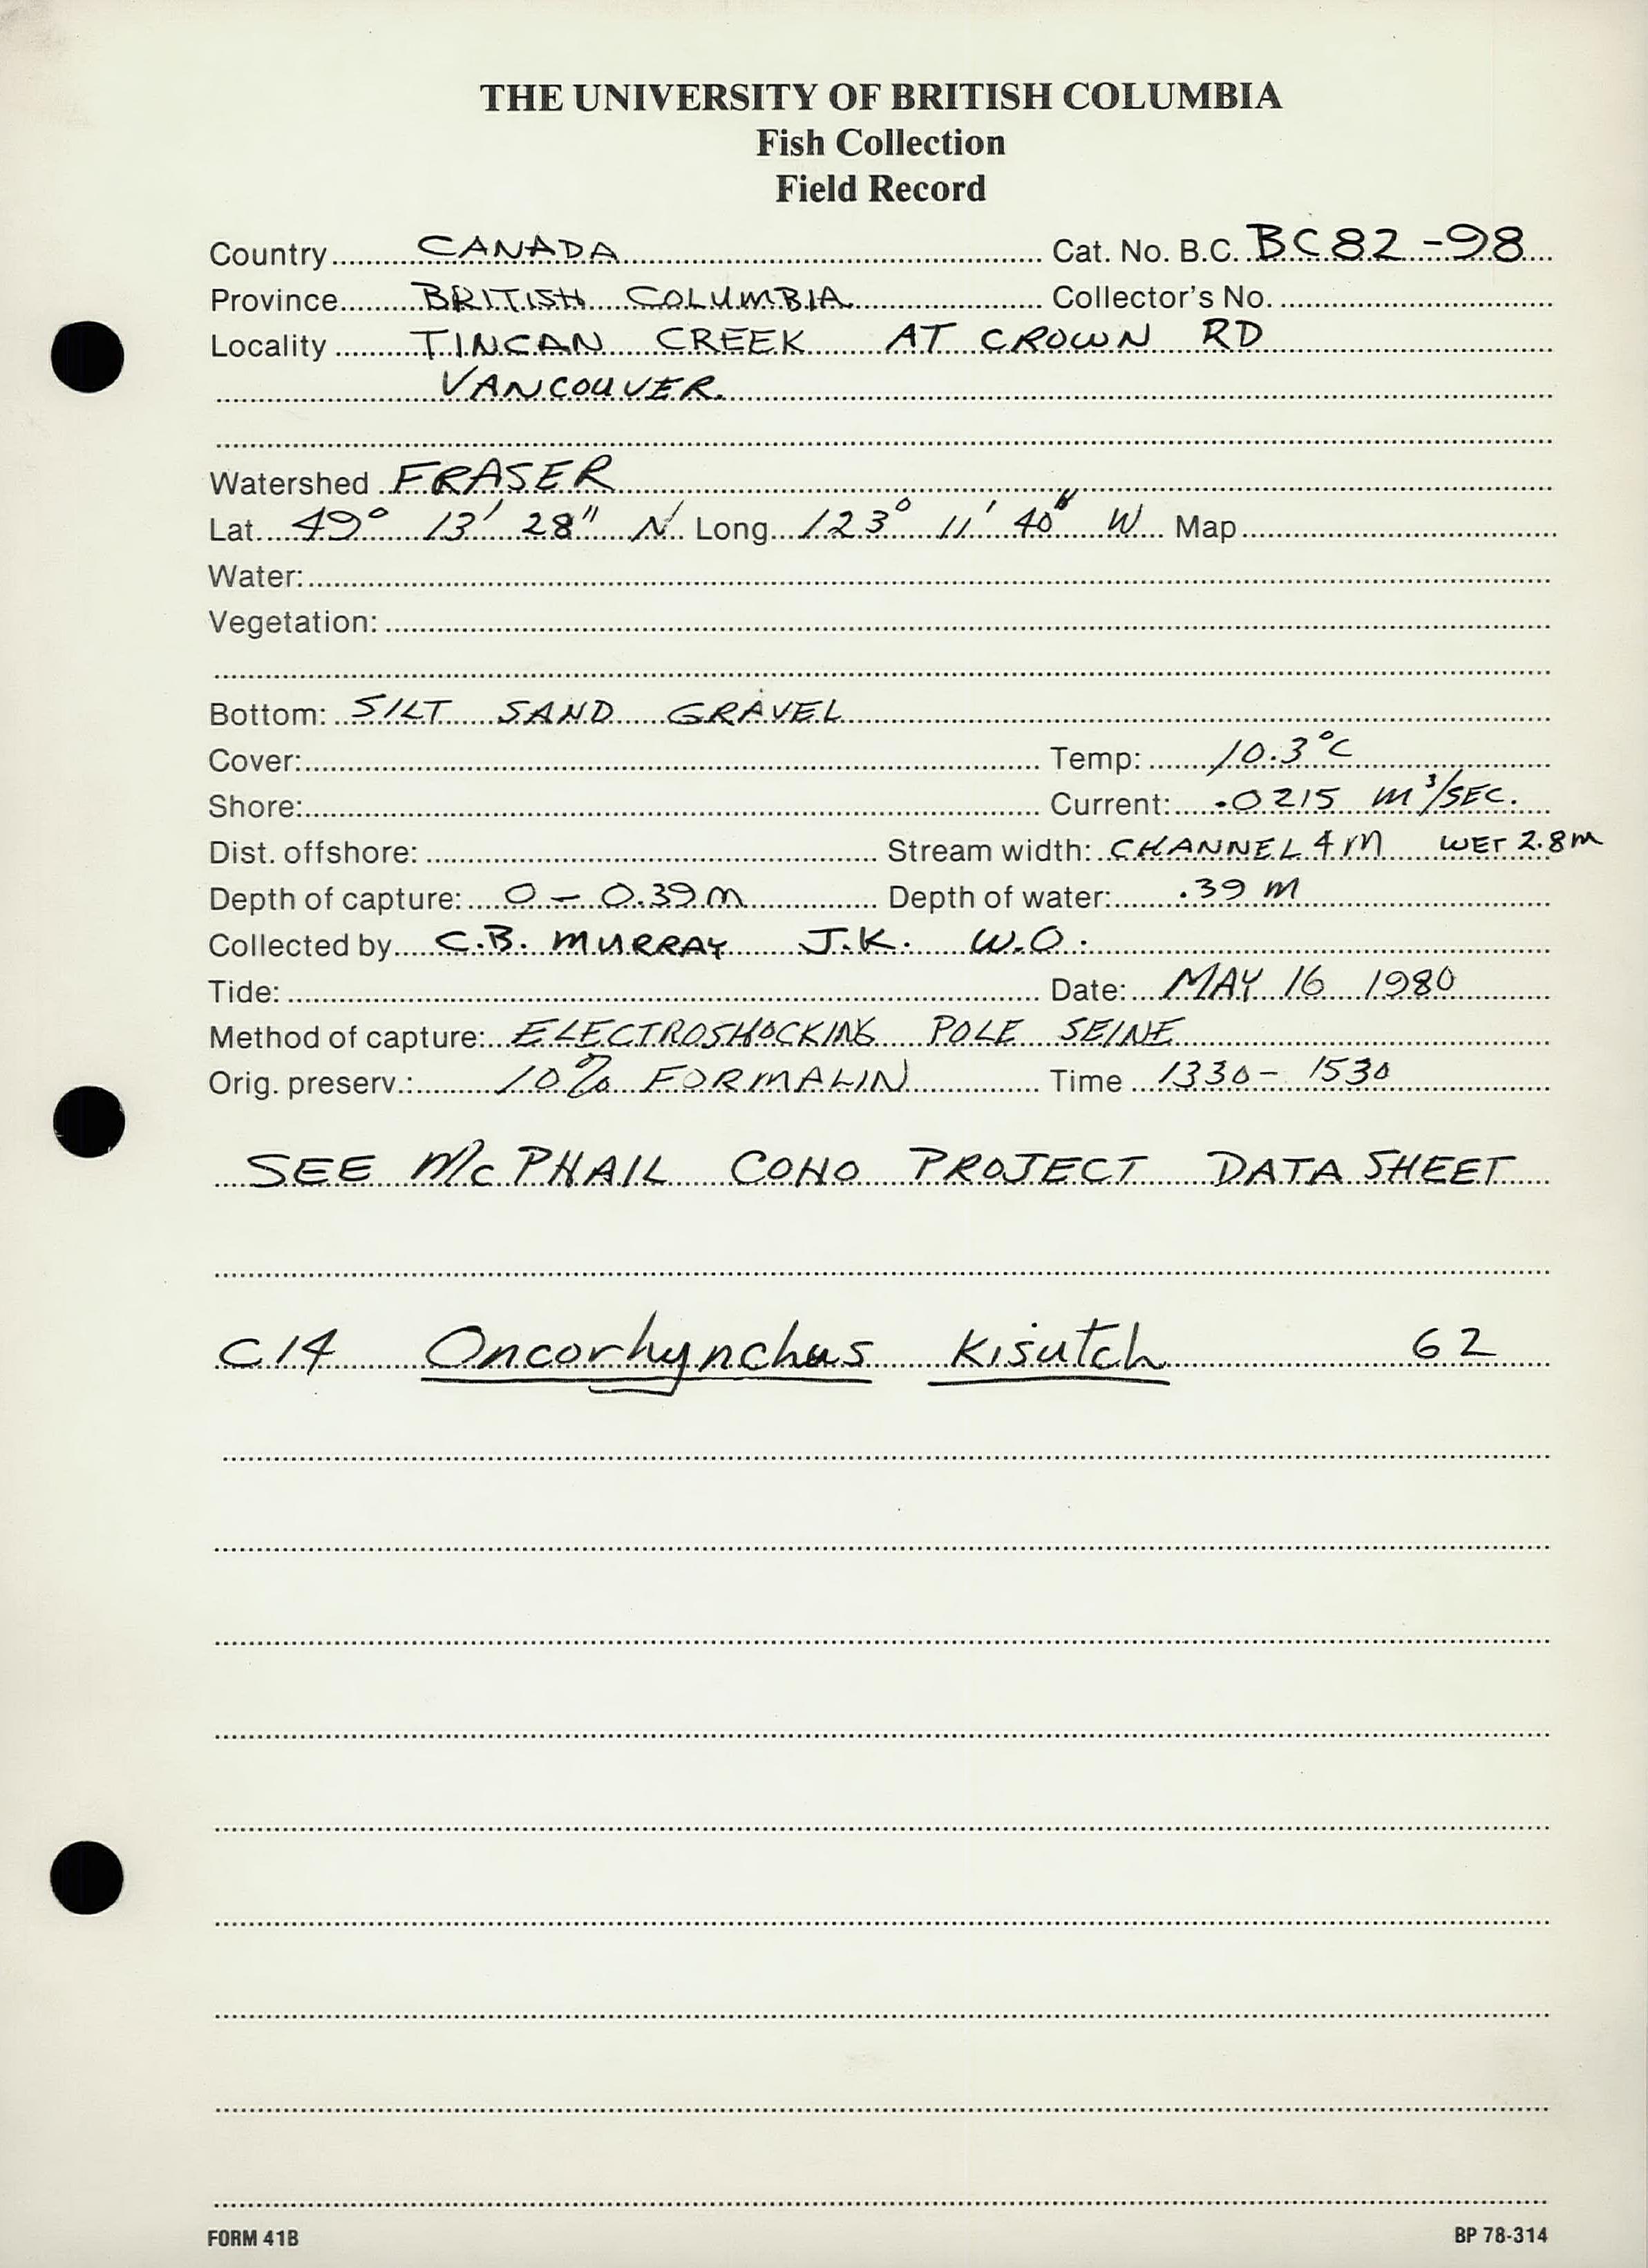 THE UNIVERSITY OF BRITISH COLUMBIA
Fish Collection
Field Record
Country CANADA Cat. No. B.C. BC82-98
Province BRITISH COLUMBIA Collector's No.
Locality TINCAN CREEK AT CROWN RD
VANCOUVER.
Watershed FRASER
Lat. 49° 13' 28" N Long. 123° 11' 40" W Map
Water:
Vegetation:
Bottom: SILT SAND GRAVEL
Cover: Temp: 10.3°C
Shore: Current: .0215 m³/SEC.
Dist. offshore: Stream width: CHANNEL 4m WET 2.8m
Depth of capture: 0 - 0.39m Depth of water: .39 m
Collected by C.B. MURRAY J.K. W.O.
Tide: Date: MAY 16 1980
Method of capture: ELECTROSHOCKING POLE SEINE
Orig. preserv.: 10% FORMALIN Time 1330 - 1530
SEE McPHAIL COHO PROJECT DATA SHEET
C14 Oncorhynchus Kisutch 62
FORM 41B BP 78-314